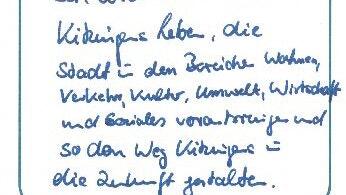 Kitzingen leben, die
Stadt in den Bereichen Wohnen,
Verkehr, Kultur, Umwelt, Wirtschaft
und Soziales voranbringen und
so den Weg Kitzingens in
die Zukunft gestalten.